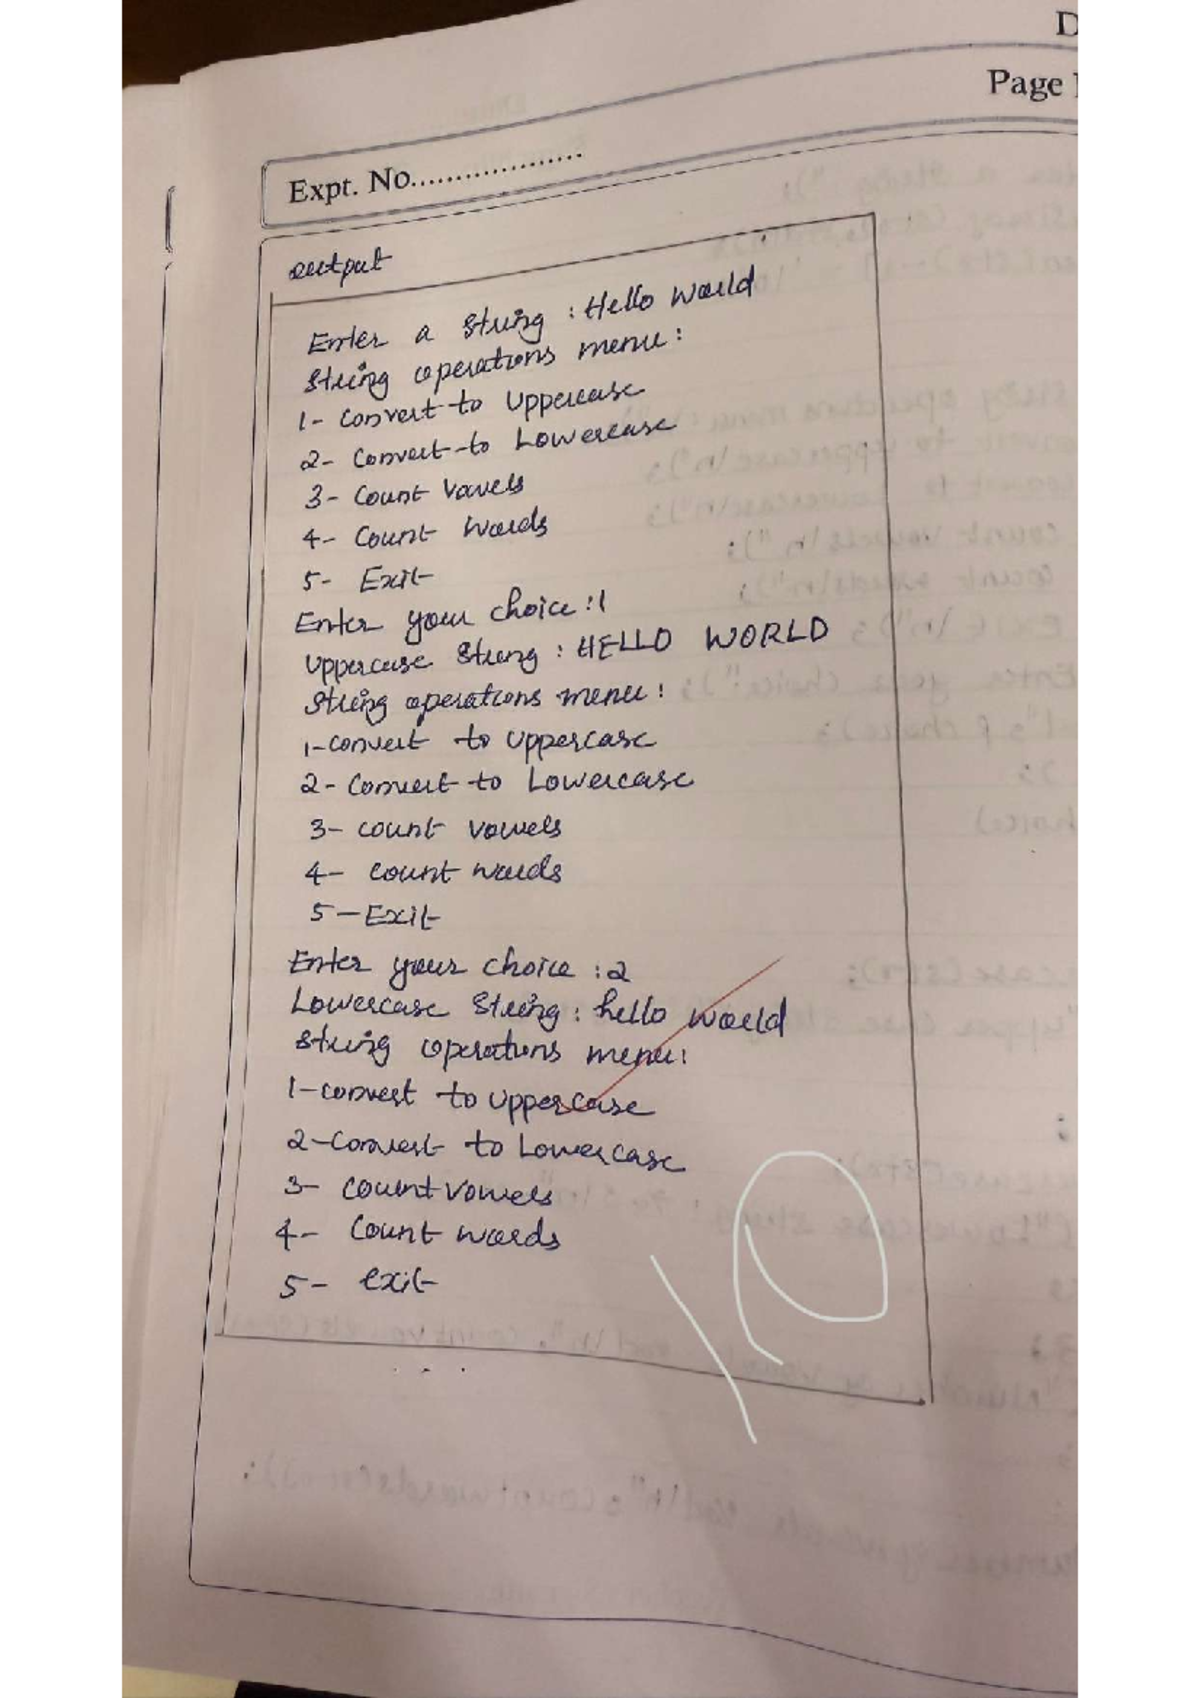 D
Page
Expt. No...................
output
Enter a string : Hello World
String operations menu :
1- Convert to Uppercase
2- Convert to Lowercase
3- Count Vowels
4- Count Words
5- Exit
Enter your choice : 1
Uppercase String : HELLO WORLD
String operations menu :
1- Convert to Uppercase
2- Convert to Lowercase
3- count vowels
4- count words
5- Exit
Enter your choice : 2
Lowercase String : hello world
String operations menu :
1- convert to Uppercase
2- Convert to Lowercase
3- Count Vowels
4- Count words
5- exit
10